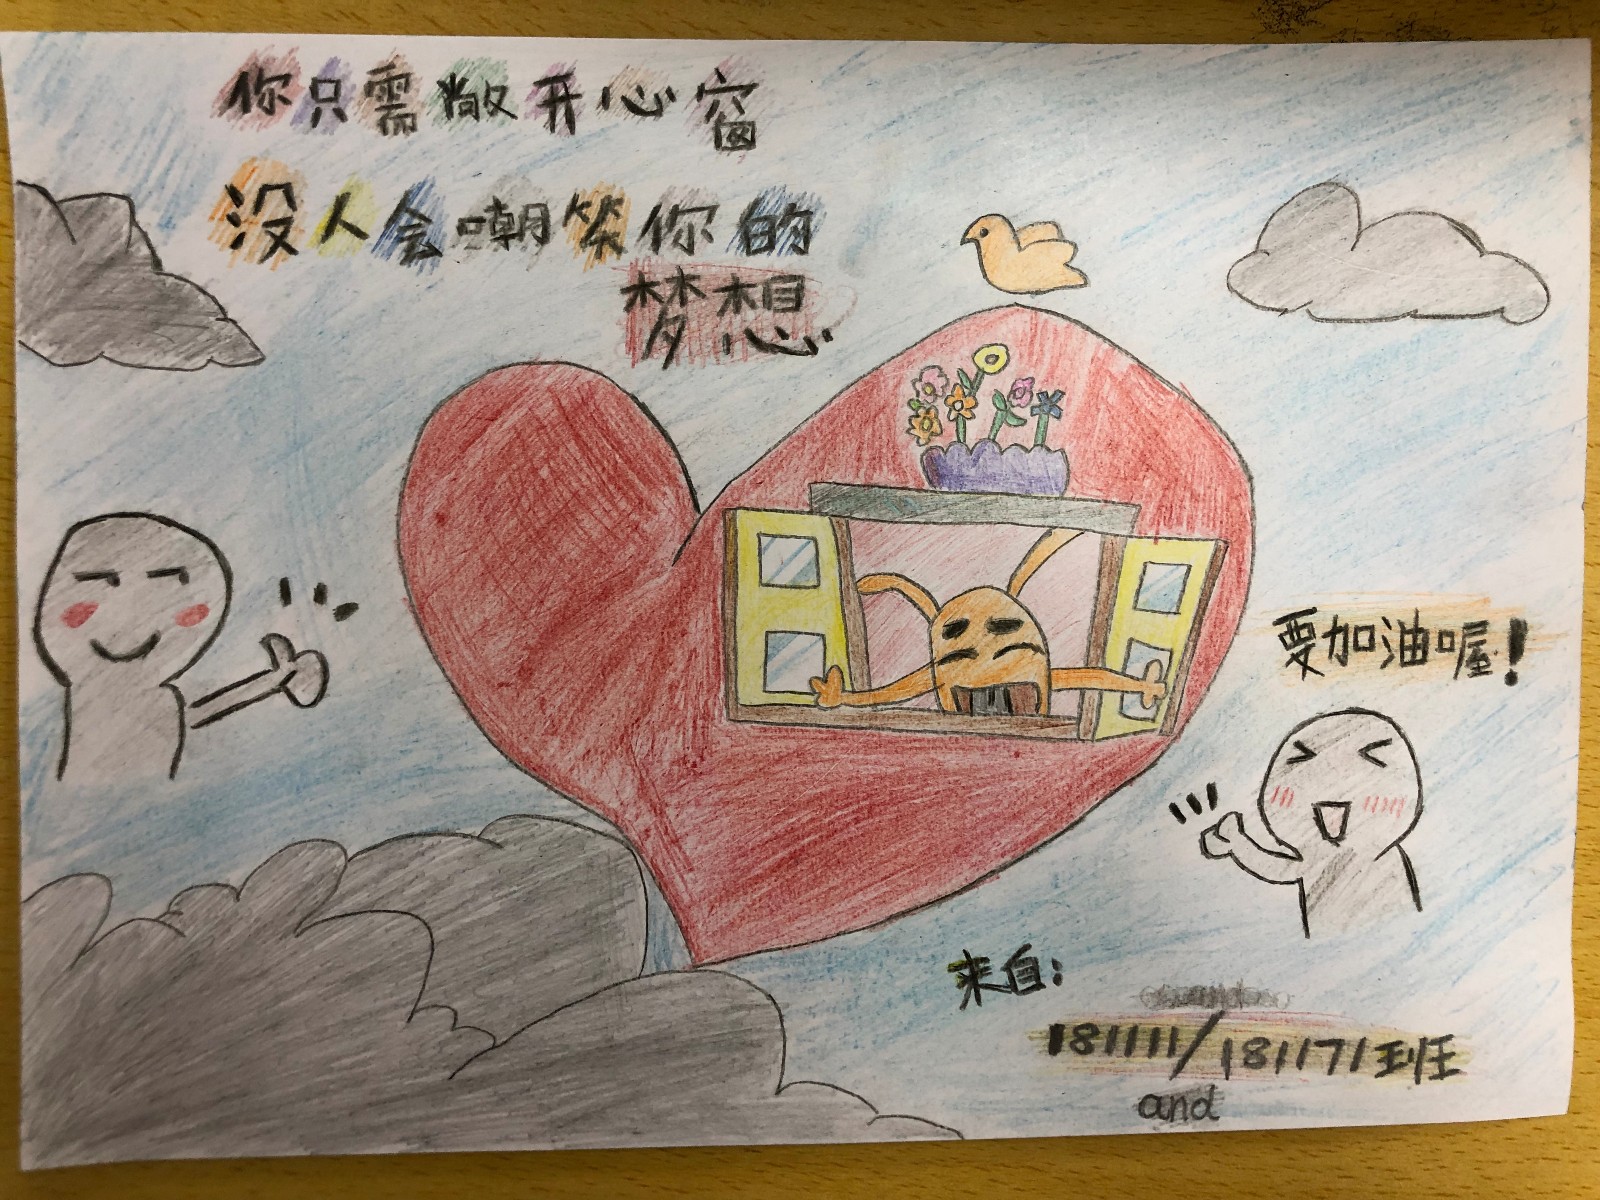 你只需敞开心窗
没人会嘲笑你的
梦想
要加油喔!
来自:
181111/181171班
and